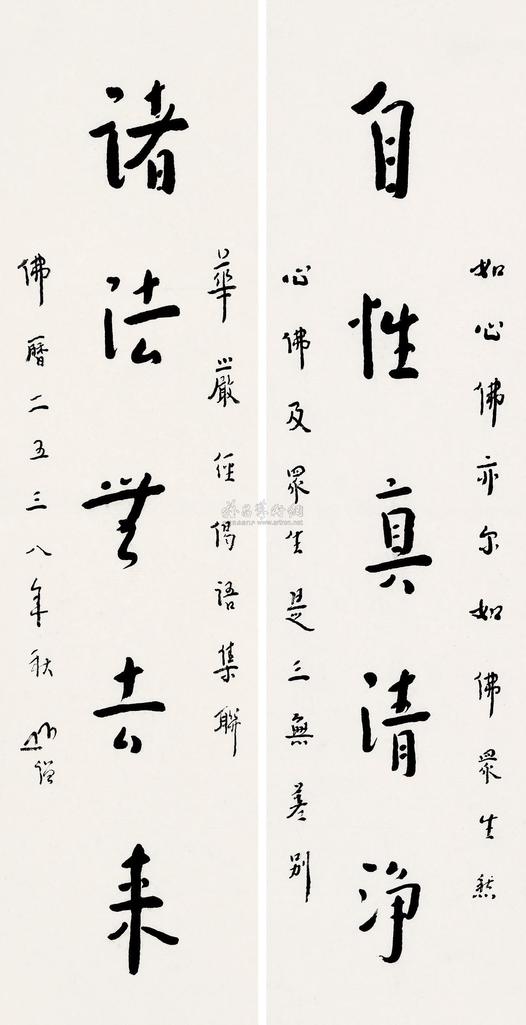 如心佛亦尔如佛眾生然
自性真清淨
心佛及眾生是三無差别
華嚴經偈語集聯
诸法無去来
佛曆二五三八年秋
雅昌藝術網
www.artron.net